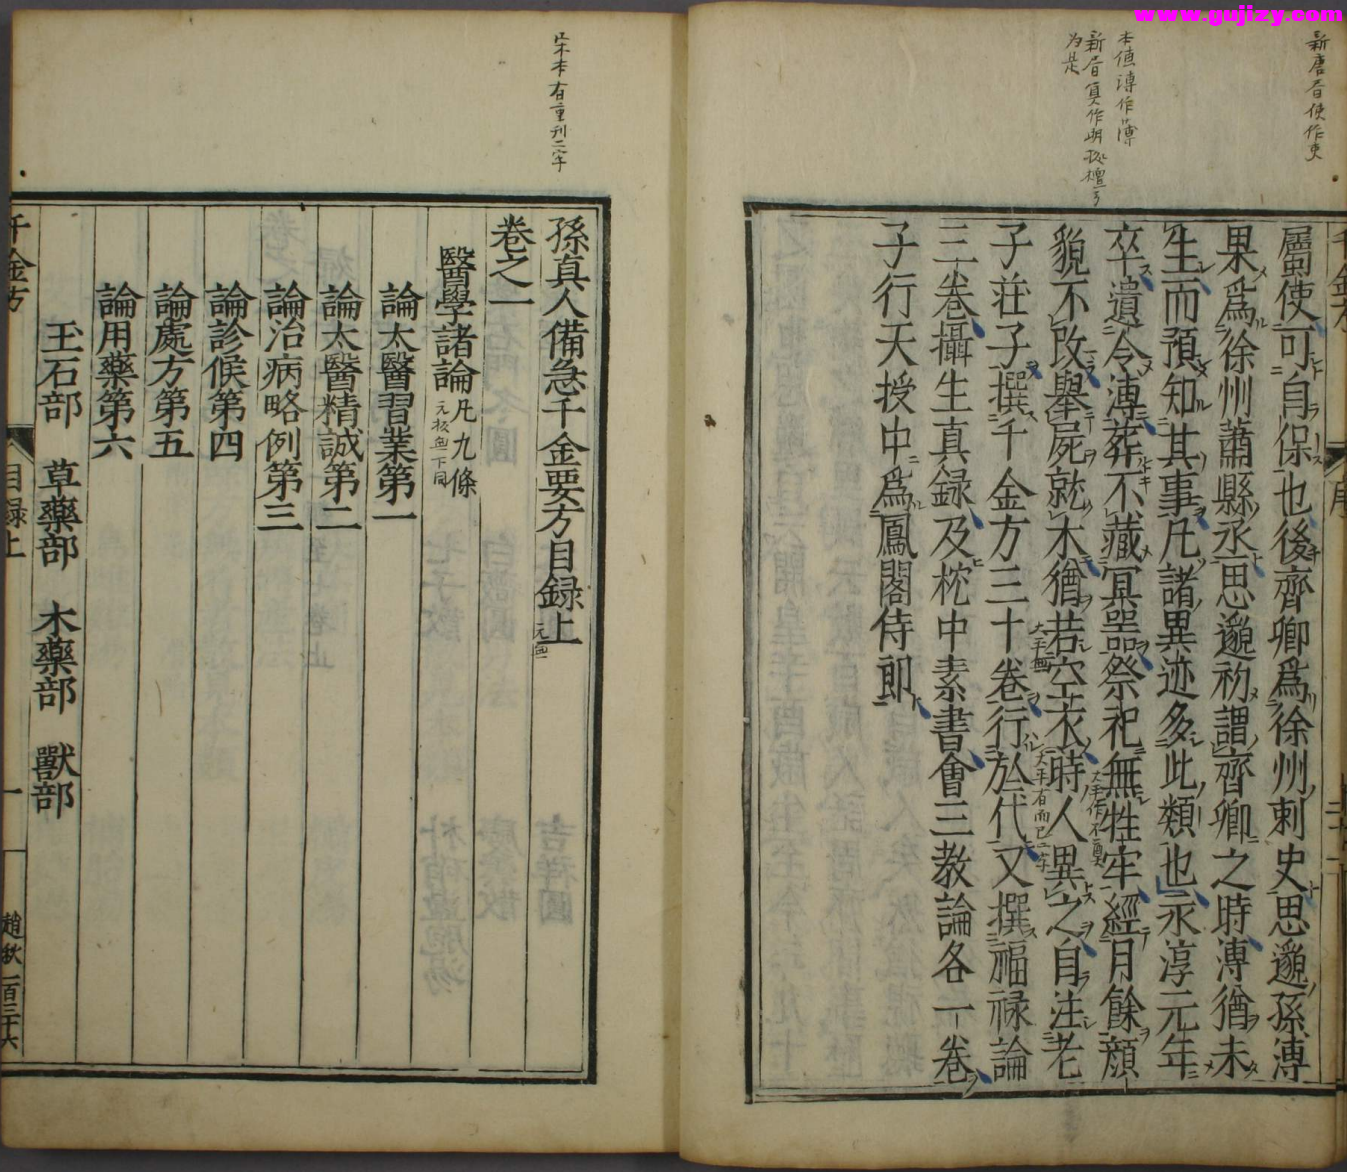 www.gujizy.com
新唐書使作吏
本傳溥作薄
新唐書
為是
屬使可自保也後齊卿爲徐州刺史思邈孫溥
果爲徐州蕭縣丞思邈初謂齊卿之時溥猶未
生而預知其事凡諸異迹多此類也永淳元年
卒遺令薄葬不藏冥器祭祀無牲牢經月餘顏
貌不改舉屍就木猶若空衣時人異之自注老
子莊子撰千金方三十卷行於代又撰福祿論
三卷攝生真録及枕中素書會三教論各一卷
子行天授中爲鳳閣侍郎
宋本右有重刊二字
孫真人備急千金要方目録上
卷之一
醫學諸論凡九條
論太醫習業第一
論太醫精誠第二
論治病略例第三
論診候第四
論處方第五
論用藥第六
玉石部 草藥部 木藥部 獸部
千金方 目録上 一